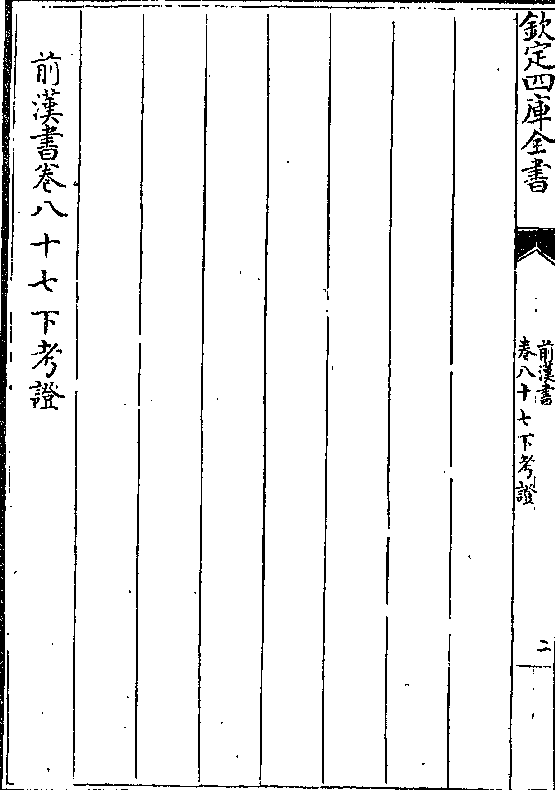 欽定四庫全書
前漢書
卷八十七下考證
二
前漢書卷八十七下考證